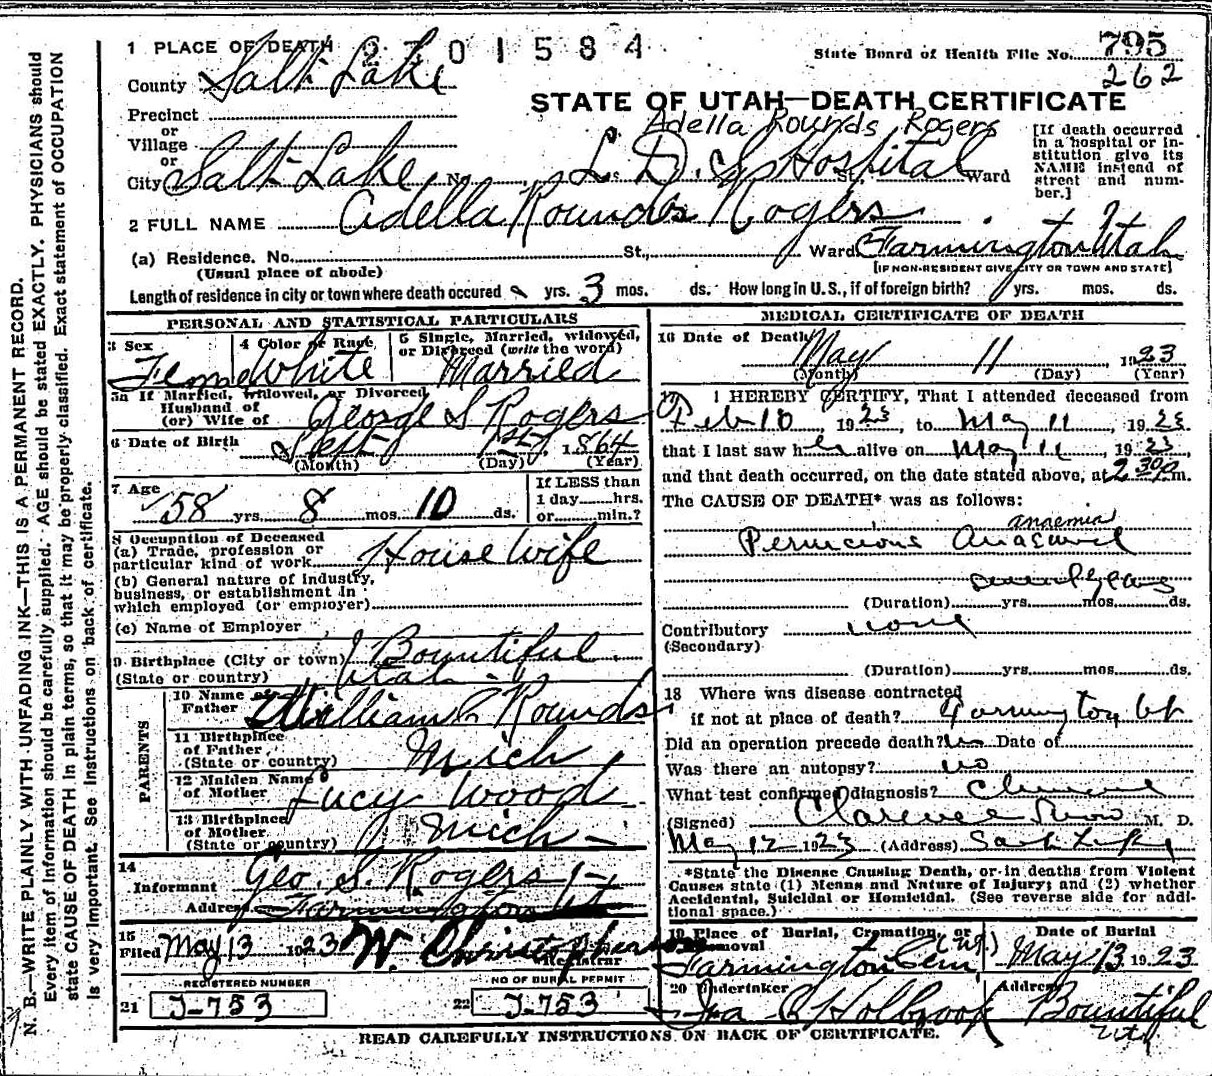 1 PLACE OF DEATH 2701584
State Board of Health File No. 795
262
County Salt Lake
STATE OF UTAH—DEATH CERTIFICATE
Precinct
or
Village
or
City Salt Lake No. L. D. S. Hospital St., Ward
Adella Rounds Rogers
[If death occurred in a hospital or institution give its NAME instead of street and number.]
2 FULL NAME Adella Rounds Rogers
(a) Residence. No. St., Ward Farmington Utah
(Usual place of abode)
[IF NON-RESIDENT GIVE CITY OR TOWN AND STATE]
Length of residence in city or town where death occured yrs. 3 mos. ds. How long in U.S., if of foreign birth? yrs. mos. ds.
PERSONAL AND STATISTICAL PARTICULARS
3 Sex
Female
4 Color or Race
White
5 Single, Married, widowed, or Divorced (write the word)
Married
5a If Married, widowed, or Divorced
Husband of
(or) Wife of George S Rogers
6 Date of Birth Sept 1st, 1864
(Month) (Day) (Year)
7 Age
58 yrs. 8 mos. 10 ds.
If LESS than
1 day hrs.
or min.?
8 Occupation of Deceased
(a) Trade, profession or
particular kind of work House Wife
(b) General nature of industry,
business, or establishment in
which employed (or employer)
(c) Name of Employer
9 Birthplace (City or town) Bountiful
(State or country) Utah
PARENTS
10 Name of
Father William C Rounds
11 Birthplace
of Father
(State or country) Mich
12 Maiden Name
of Mother Lucy Wood
13 Birthplace
of Mother
(State or country) Mich
14
Informant Geo. S. Rogers
Address Farmington Ut
15
Filed May 13 1923 W. Christopherson
Registrar
REGISTERED NUMBER
21 J-753
NO OF BURIAL PERMIT
22 J-753
MEDICAL CERTIFICATE OF DEATH
16 Date of Death May 11 1923
(Month) (Day) (Year)
17 I HEREBY CERTIFY, That I attended deceased from
Feb 10, 1923, to May 11, 1923
that I last saw her alive on May 11, 1923
and that death occurred, on the date stated above, at 2 30 p m.
The CAUSE OF DEATH* was as follows:
anaemia
Pernicious Anaemia
several years
(Duration) yrs. mos. ds.
Contributory none
(Secondary)
(Duration) yrs. mos. ds.
18 Where was disease contracted
if not at place of death? Farmington Ut
Did an operation precede death? no Date of
Was there an autopsy? no
What test confirmed diagnosis? Clinical
(Signed) Clarence Snow M. D.
May 12 1923 (Address) Salt Lake
*State the Disease Causing Death, or in deaths from Violent
Causes state (1) Means and Nature of Injury; and (2) whether
Accidental, Suicidal or Homicidal. (See reverse side for addi-
tional space.)
19 Place of Burial, Cremation, or
Removal
Farmington Cem (Ut.)
Date of Burial
May 13 1923
20 Undertaker
Ira C Holbrook
Address
Bountiful
Utah
READ CAREFULLY INSTRUCTIONS ON BACK OF CERTIFICATE.
N. B.—WRITE PLAINLY WITH UNFADING INK—THIS IS A PERMANENT RECORD.
Every item of information should be carefully supplied. AGE should be stated EXACTLY. PHYSICIANS should
state CAUSE OF DEATH in plain terms, so that it may be properly classified. Exact statement of OCCUPATION
is very important. See instructions on back of certificate.